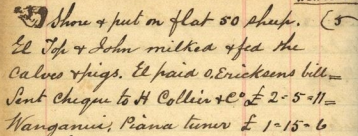 Shore & put on flat 50 sheep. (5
El Top & John milked & fed the
calves & pigs. El paid O. Ericksens bill =
Sent cheque to H Collier & Co £ 2 = 5 = 11 =
Wanganui, Piana tuner £ 1 = 15 = 6